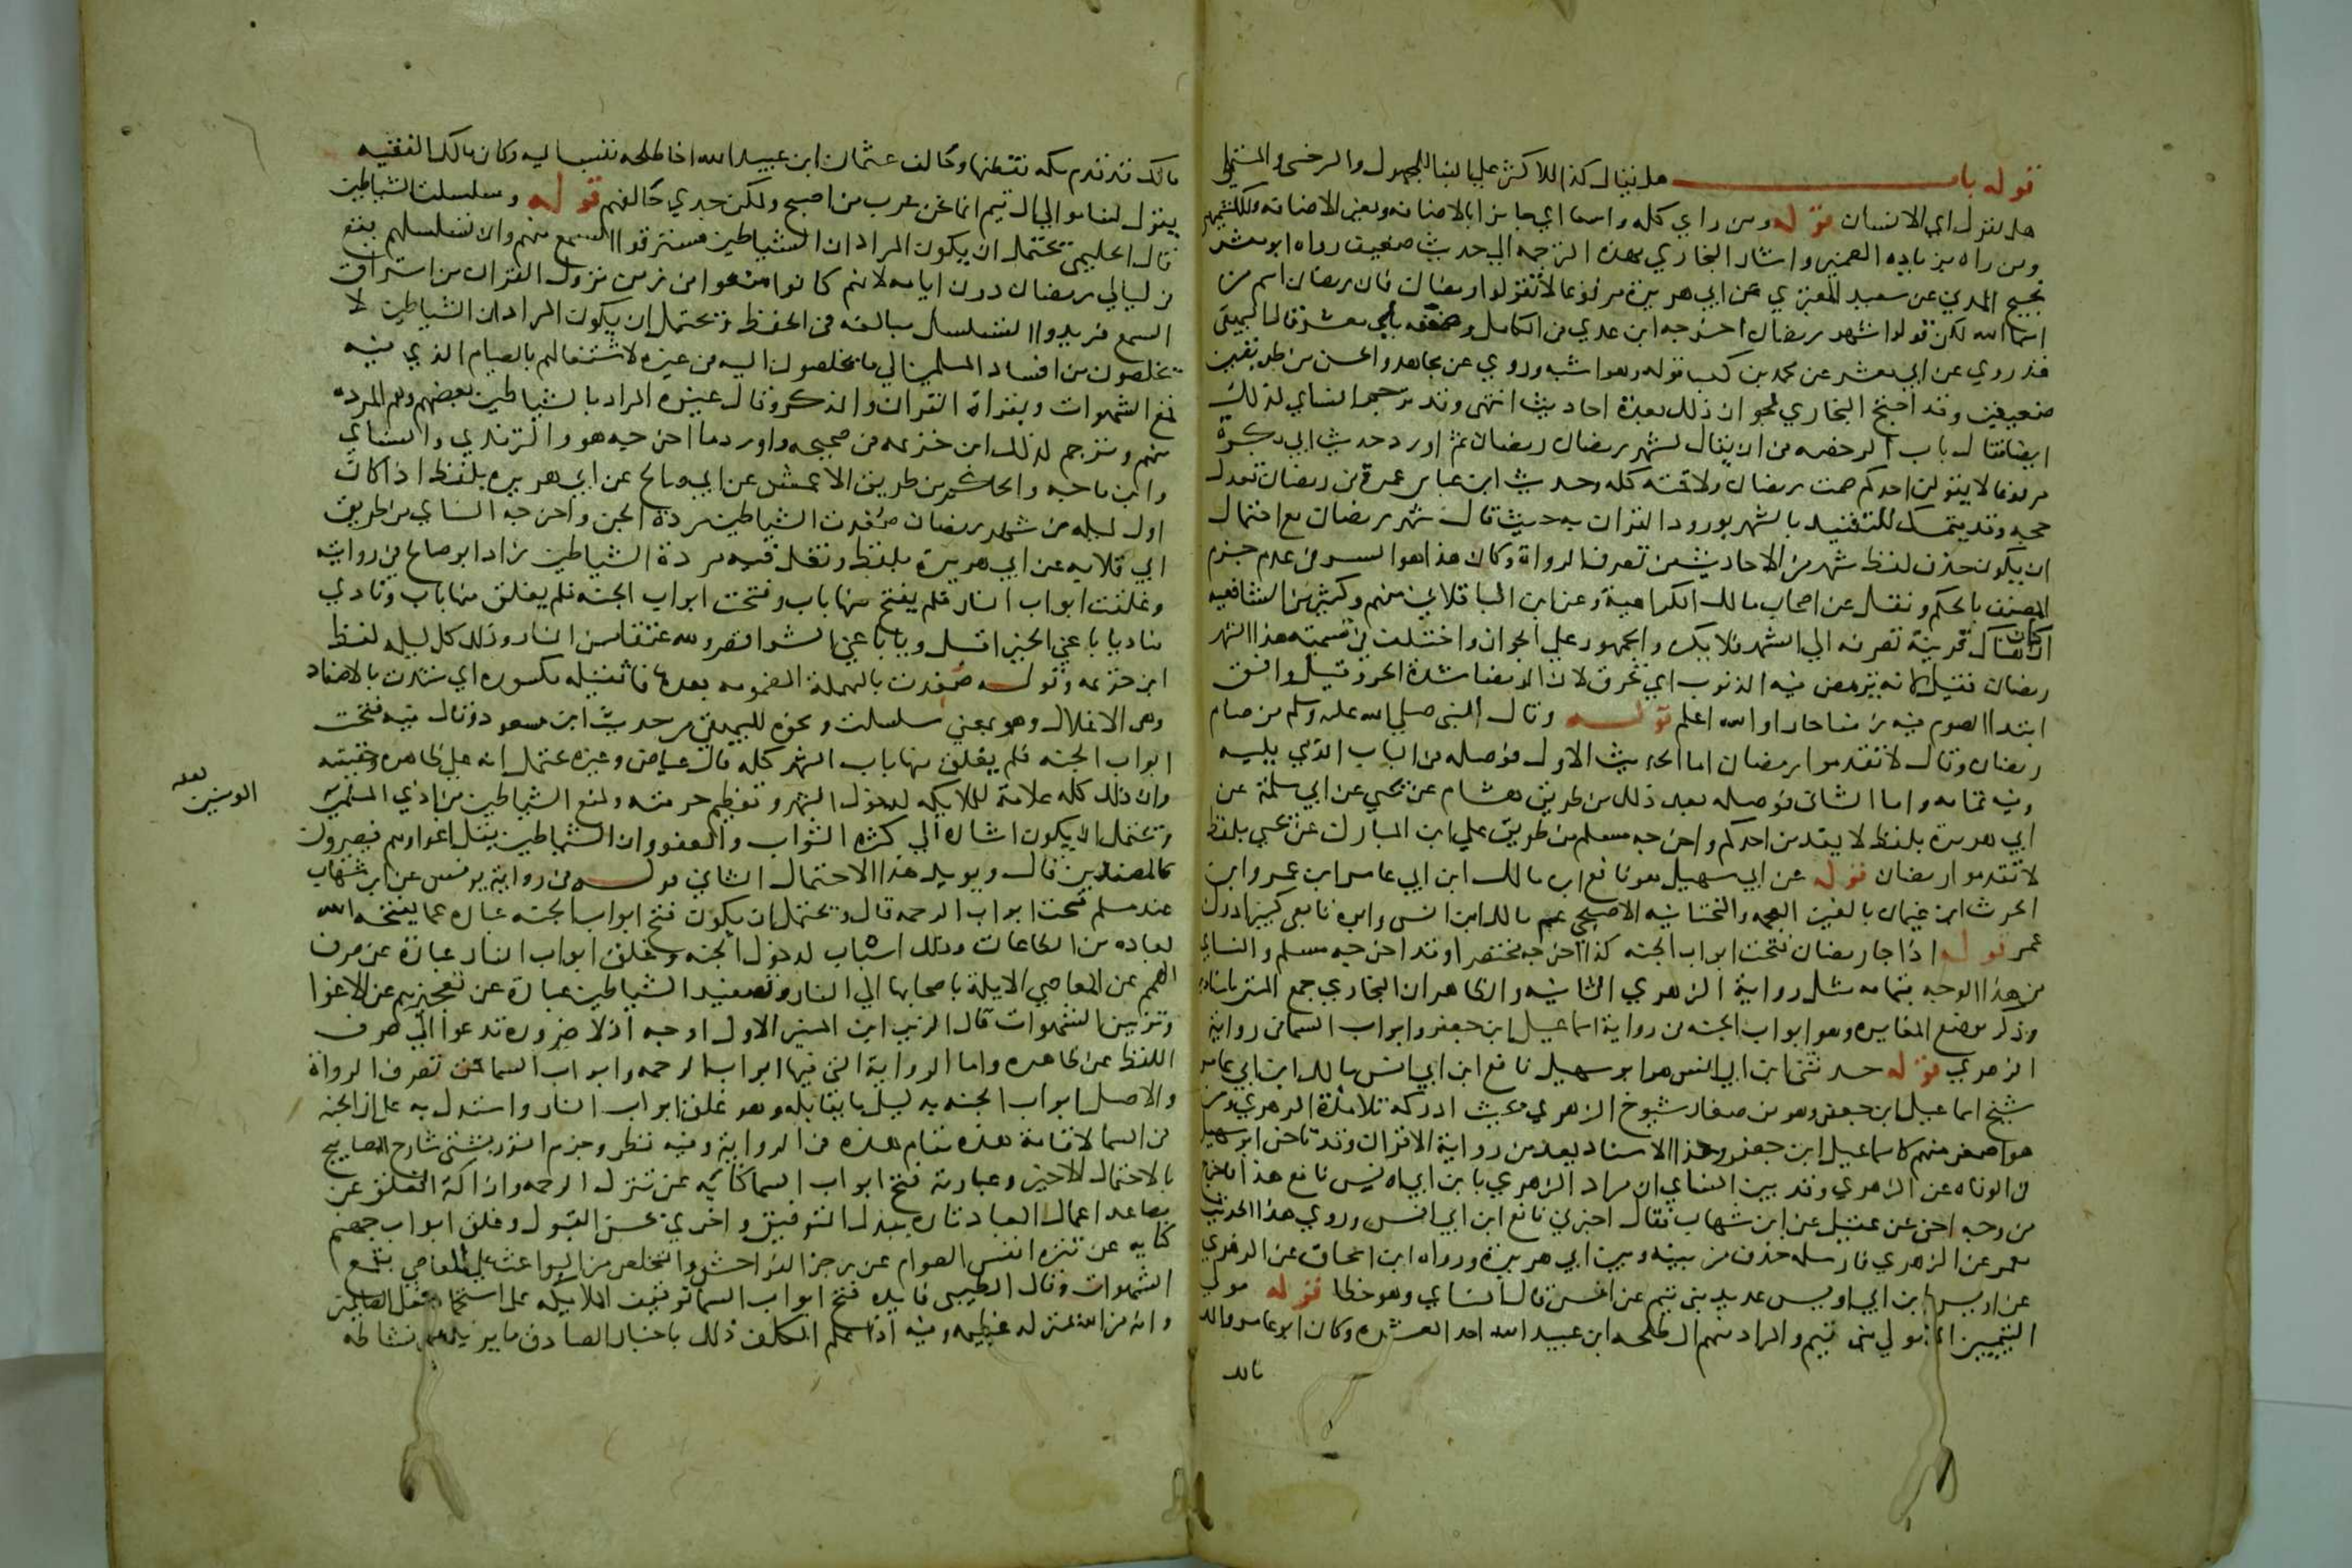 قوله باب هل يقال كذا للاكثر علي البنا للمجهول وللسرخسي والمستملي
هل يقول اي الانسان قوله ومن راي كله واسعا اي جايزا بالاضافه وبغير الاضافه وللكشميهني
ومن راه بزياده الضمير واشار البخاري بهذه الترجمه الي حديث ضعيف رواه ابو معشر
نجيح المدني عن سعيد المقبري عن ابي هريرة مرفوعا لا تقولوا رمضان فان رمضان اسم من
اسما الله لكن قولوا شهر رمضان اخرجه ابن عدي في الكامل وضعفه بابي معشر قال البيهقي
قد روي عن ابي معشر عن محمد بن كعب قوله وهو اشبه وروي عن مجاهد والحسن من طريقين
ضعيفين وقد احتج البخاري لجواز ذلك بعدة احاديث انتهي وقد ترجم النساي لذلك
ايضا فقال باب الرخصه في ان يقال لشهر رمضان رمضان ثم اورد حديث ابي بكرة
مرفوعا لا يقولن احدكم صمت رمضان ولا قمته كله وحديث ابن عباس عمرة في رمضان تعدل
حجه وقد يتمسك للتقييد بالشهر بورود القران به حيث قال شهر رمضان مع احتمال
ان يكون حذف لفظ شهر من الاحاديث من تصرف الرواة وكان هذا هو السر في عدم جزم
المصنف بالحكم ونقل عن اصحاب مالك الكراهية وعن ابن الباقلاني منهم وكثير من الشافعيه
ان كان هناك قرينة تصرفه الي الشهر فلا يكره والجمهور علي الجواز واختلف في تسمية هذا الشهر
رمضان فقيل لانه ترمض فيه الذنوب اي تحرق لان الرمضا شدة الحر وقيل وافق
ابتدا الصوم فيه زمنا حارا والله اعلم قوله وقال النبي صلي الله عليه وسلم من صام
رمضان وقال لا تقدموا رمضان اما الحديث الاول فوصله في الباب الذي يليه
وفيه تمامه واما الثاني فوصله بعد ذلك من طريق هشام عن يحيي عن ابي سلمة عن
ابي هريرة بلفظ لا يتقدمن احدكم واخرجه مسلم من طريق علي ابن المبارك عن يحيي بلفظ
لا تقدموا رمضان قوله عن ابي سهيل هو نافع ابن مالك ابن ابي عامر ابن عمرو ابن
الحرث ابن غيمان بالغين المعجمه والتحتانيه الاصبحي عم مالك ابن انس وابوه تابعي كبير ادرك
عمر قوله اذا جا رمضان فتحت ابواب الجنه كذا اخرجه مختصرا وقد اخرجه مسلم والنساي
من هذا الوجه بتمامه مثل رواية الزهري الثانيه والظاهر ان البخاري جمع المتن باسنادين
وذكر موضع المغايره وهو ابواب الجنه في رواية اسماعيل ابن جعفر وابواب السما في رواية
الزهري قوله حدثني ابن ابي انس هو ابو سهيل نافع ابن ابي انس مالك ابن ابي عامر
شيخ اسماعيل ابن جعفر وهو من صغار شيوخ الزهري بحيث ادركه تلامذة الزهري ومن
هو اصغر منهم كاسماعيل ابن جعفر وهذا الاسناد يعد من رواية الاقران وقد تاخر ابو سهيل
في الوفاه عن الزهري وقد بين النساي ان مراد الزهري بابن ابي انس نافع هذا فاخرج
من وجه اخر عن عقيل عن ابن شهاب فقال اخبرني نافع ابن ابي انس وروي هذا الحديث
معمر عن الزهري فارسله حذف من بينه وبين ابي هريرة ورواه ابن اسحاق عن الزهري
عن اويس ابن ابي اويس عديد بني تيم عن انس قال النساي وهو خطا قوله مولي
التيميين اي مولي بني تيم والمراد منهم ال طلحه ابن عبيد الله احد العشره وكان ابو عامر والد
مالك
مالك قد قدم مكه فقطنها وحالف عثمان ابن عبيد الله اخا طلحه فنسب اليه وكان مالك الفقيه
يقول لسنا موالي ال تيم انما نحن عرب من اصبح ولكن جدي حالفهم قوله وسلسلت الشياطين
قال الحليمي يحتمل ان يكون المراد ان الشياطين مسترقوا السمع منهم وان تسلسلهم يقع
في ليالي رمضان دون ايامه لانهم كانوا منعوا في زمن نزول القران من استراق
السمع فزيدوا التسلسل مبالغه في الحفظ ويحتمل ان يكون المراد ان الشياطين لا
يخلصون من افساد المسلمين الي ما يخلصون اليه في غيره لاشتغالهم بالصيام الذي فيه
قمع الشهوات وبقراة القران والذكر وقال غيره المراد بالشياطين بعضهم وهم المرده
منهم وترجم لذلك ابن خزيمه في صحيحه واورد ما اخرجه هو والترمذي والنساي
وابن ماجه والحاكم من طريق الاعمش عن ابي صالح عن ابي هريره بلفظ اذا كان
اول ليله من شهر رمضان صفدت الشياطين مردة الجن واخرجه النساي من طريق
ابي قلابه عن ابي هريرة بلفظ وتغل فيه مردة الشياطين زاد ابو صالح في روايته
وغلقت ابواب النار فلم يفتح منها باب وفتحت ابواب الجنه فلم يغلق منها باب ونادي
مناد يا باغي الخير اقبل ويا باغي الشر اقصر ولله عتقا من النار وذلك كل ليله لفظ
ابن خزيمه وقوله صفدت بالمهملة المضمومه بعدها فا ثقيله مكسوره اي شدت بالاصفاد
وهي الاغلال وهو بمعني سلسلت ونحوه للبيهقي من حديث ابن مسعود وقال فيه فتحت
ابواب الجنه فلم يغلق منها باب الشهر كله قال عياض وغيره يحتمل انه علي ظاهره وحقيقته
وان ذلك كله علامة للملايكه لدخول الشهر وتعظيم حرمته ولمنع الشياطين من اذي المسلمين
ويحتمل ان يكون اشاره الي كثره الثواب والعفو وان الشياطين يقل اغواوهم فيصيرون
كالمصفدين قال ويويد هذا الاحتمال الثاني قوله في رواية يونس عن ابن شهاب
عند مسلم فتحت ابواب الرحمه قال ويحتمل ان يكون فتح ابواب الجنه عباره عما يفتحه الله
لعباده من الطاعات وذلك اسباب لدخول الجنه وغلق ابواب النار عبارة عن صرف
الهمم عن المعاصي الايلة باصحابها الي النار وتصفيد الشياطين عبارة عن تعجيزهم عن الاغوا
وتزيين الشهوات قال الزين ابن المنير الاول اوجه اذ لا ضروره تدعوا الي صرف
اللفظ عن ظاهره واما الرواية التي فيها ابواب الرحمه وابواب السما فمن تصرف الرواة
والاصل ابواب الجنه بدليل ما يقابله وهو غلق ابواب النار واستدل به علي ان الجنه
في السما لاقامة هذه مقام هذه في الرواية وفيه نظر وجزم التوربشتي شارح المصابيح
بالاحتمال الاخير وعبارته فتح ابواب السما كنايه عن تنزل الرحمه وازالة الغلق عن
مصاعد اعمال العباد تاره ببذل التوفيق واخري بحسن القبول وغلق ابواب جهنم
كنايه عن تنزه انفس الصوام عن رجز الفواحش والتخلص من البواعث علي المعاصي بقمع
الشهوات وقال الطيبي فايده فتح ابواب السما توقيف الملايكه علي استحماد فعل الصايمين
وانه من الله بمنزله عظيمه وفيه اذا علم المكلف ذلك باخبار الصادق ما يزيد في نشاطه